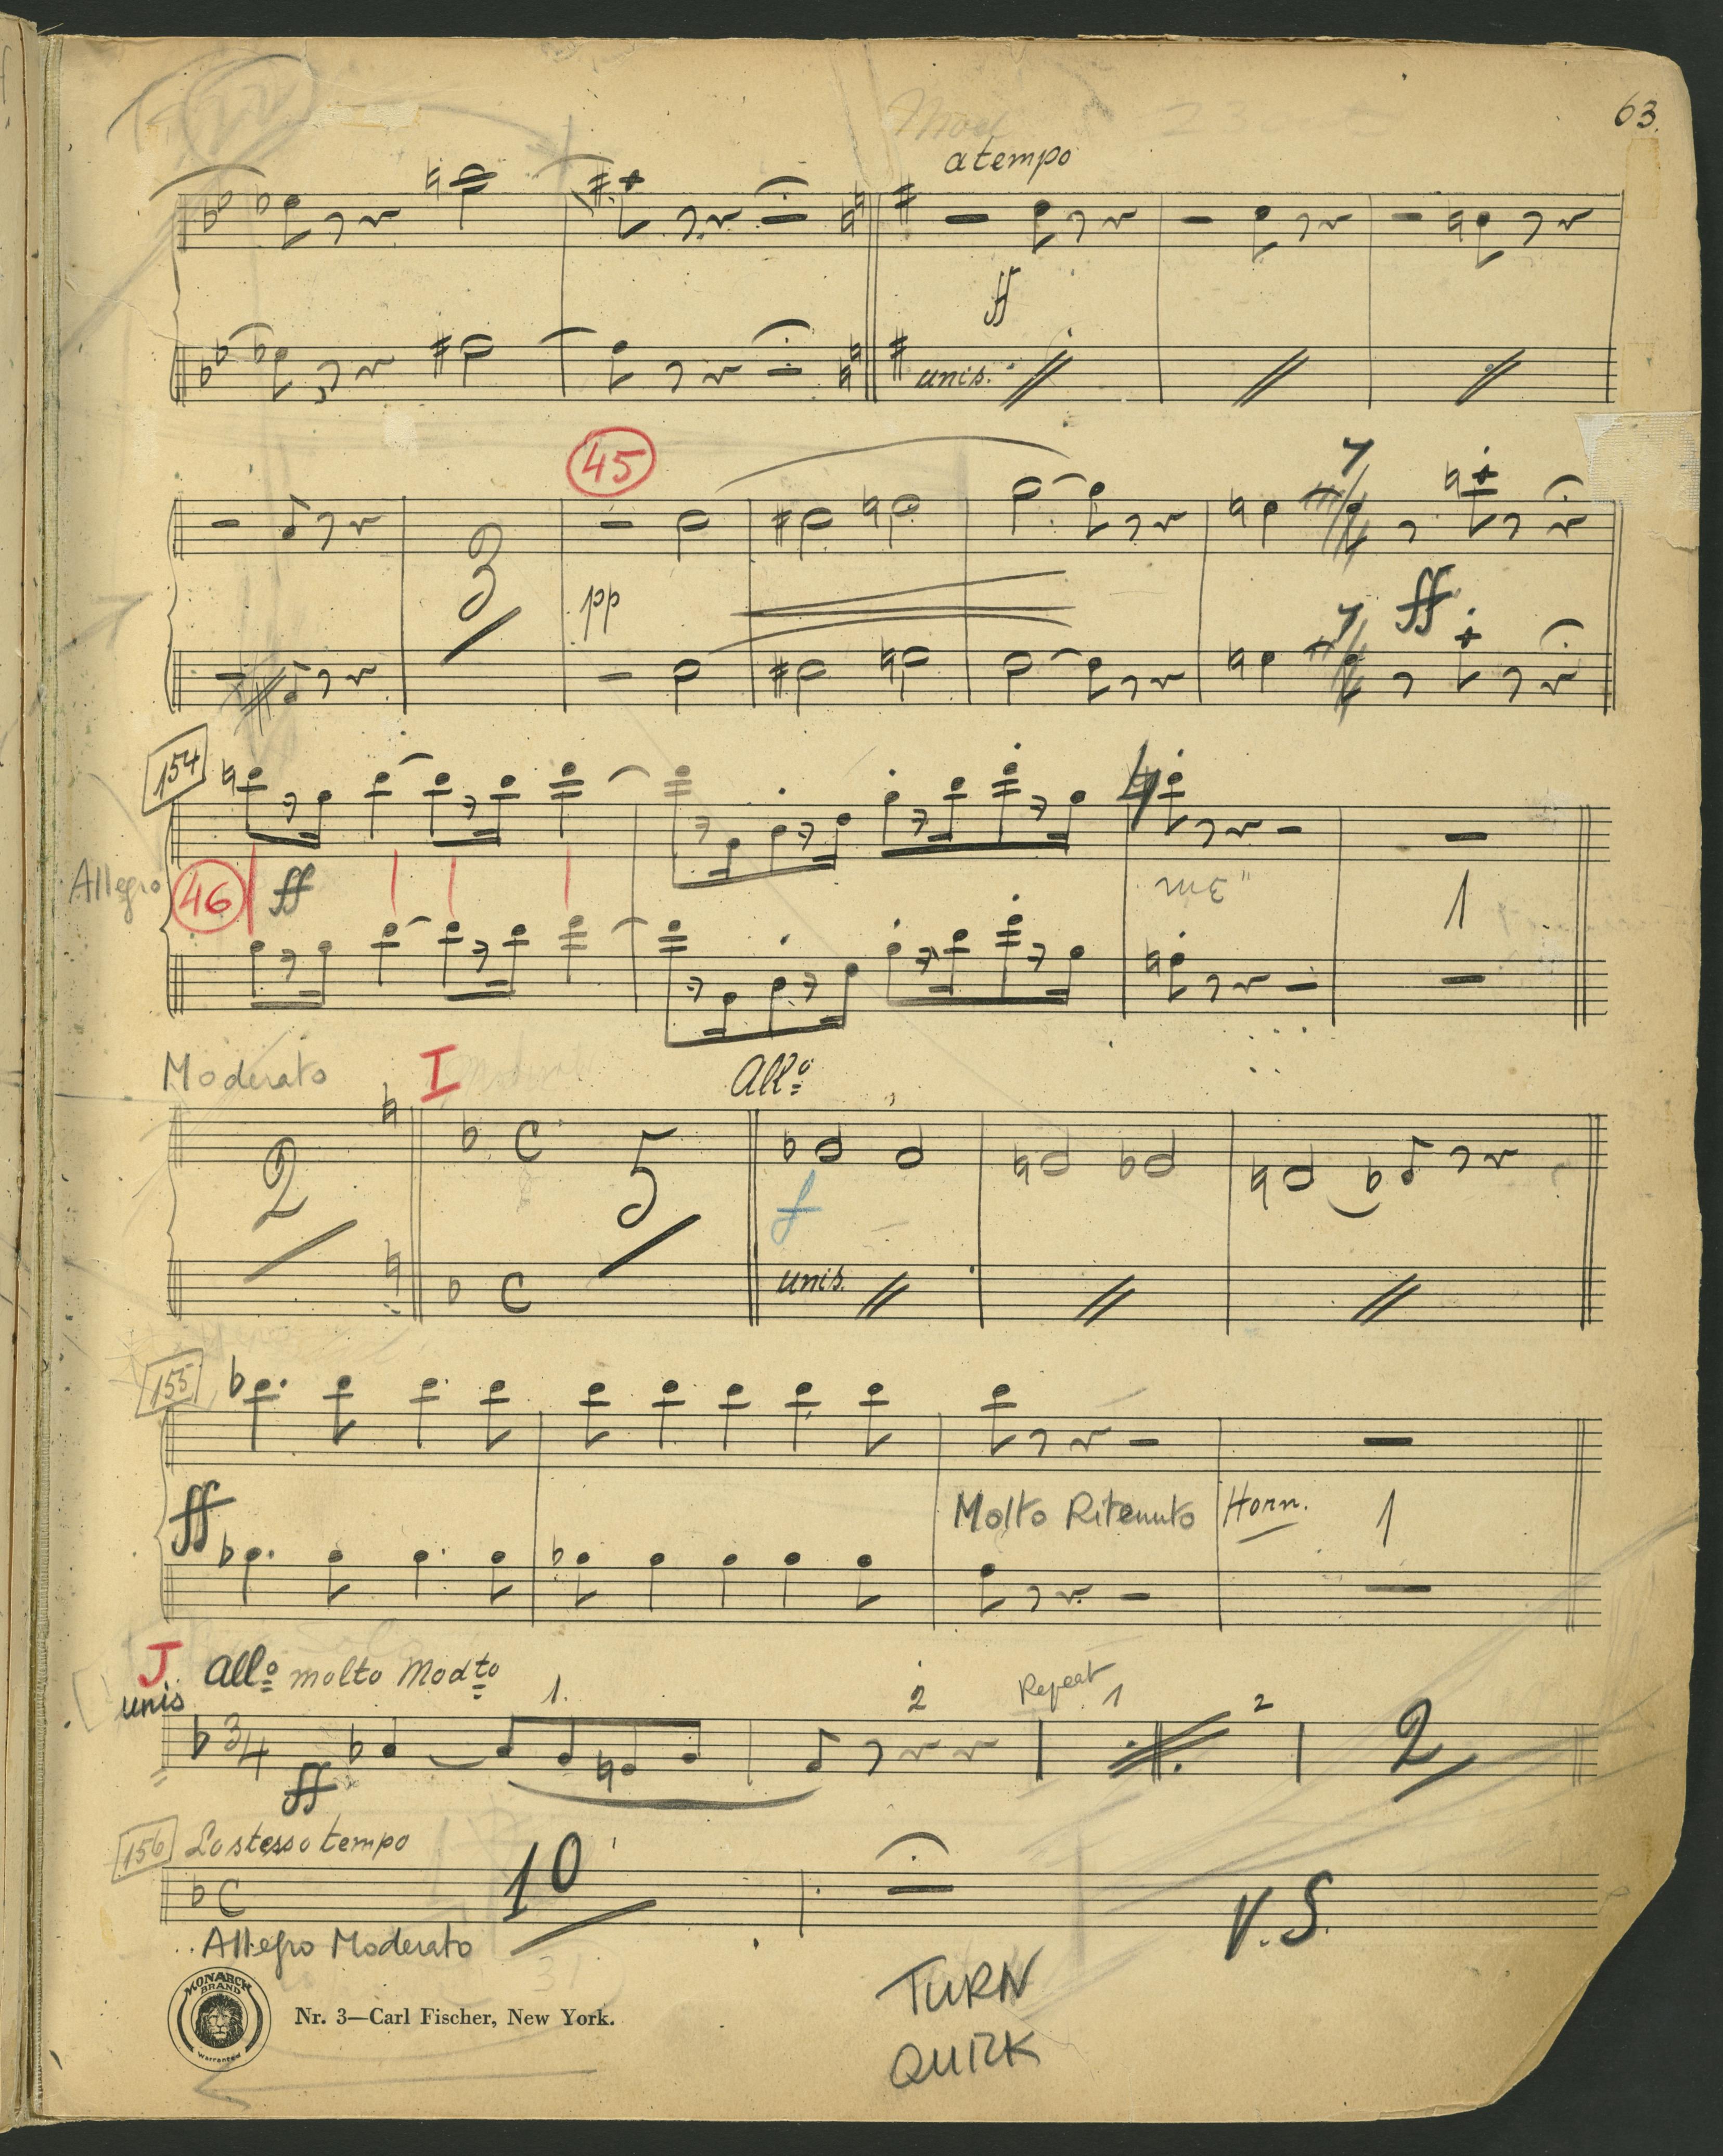 63.
a tempo
ff
unis.
45
3
pp
7
ff
7
154
Allegro
46
ff
1
Moderato
I
All⁰
2
C
5
f
C
unis.
155
ff
Molto Ritenuto
Horn.
1
J.
All⁰ molto Modto
unis
1.
2
Repeat
1
2
3/4
2
ff
156
Lo stesso tempo
C
10
V.S.
Allegro Moderato
TURN
QUICK
MONARCH
BRAND
Warranted
Nr. 3—Carl Fischer, New York.